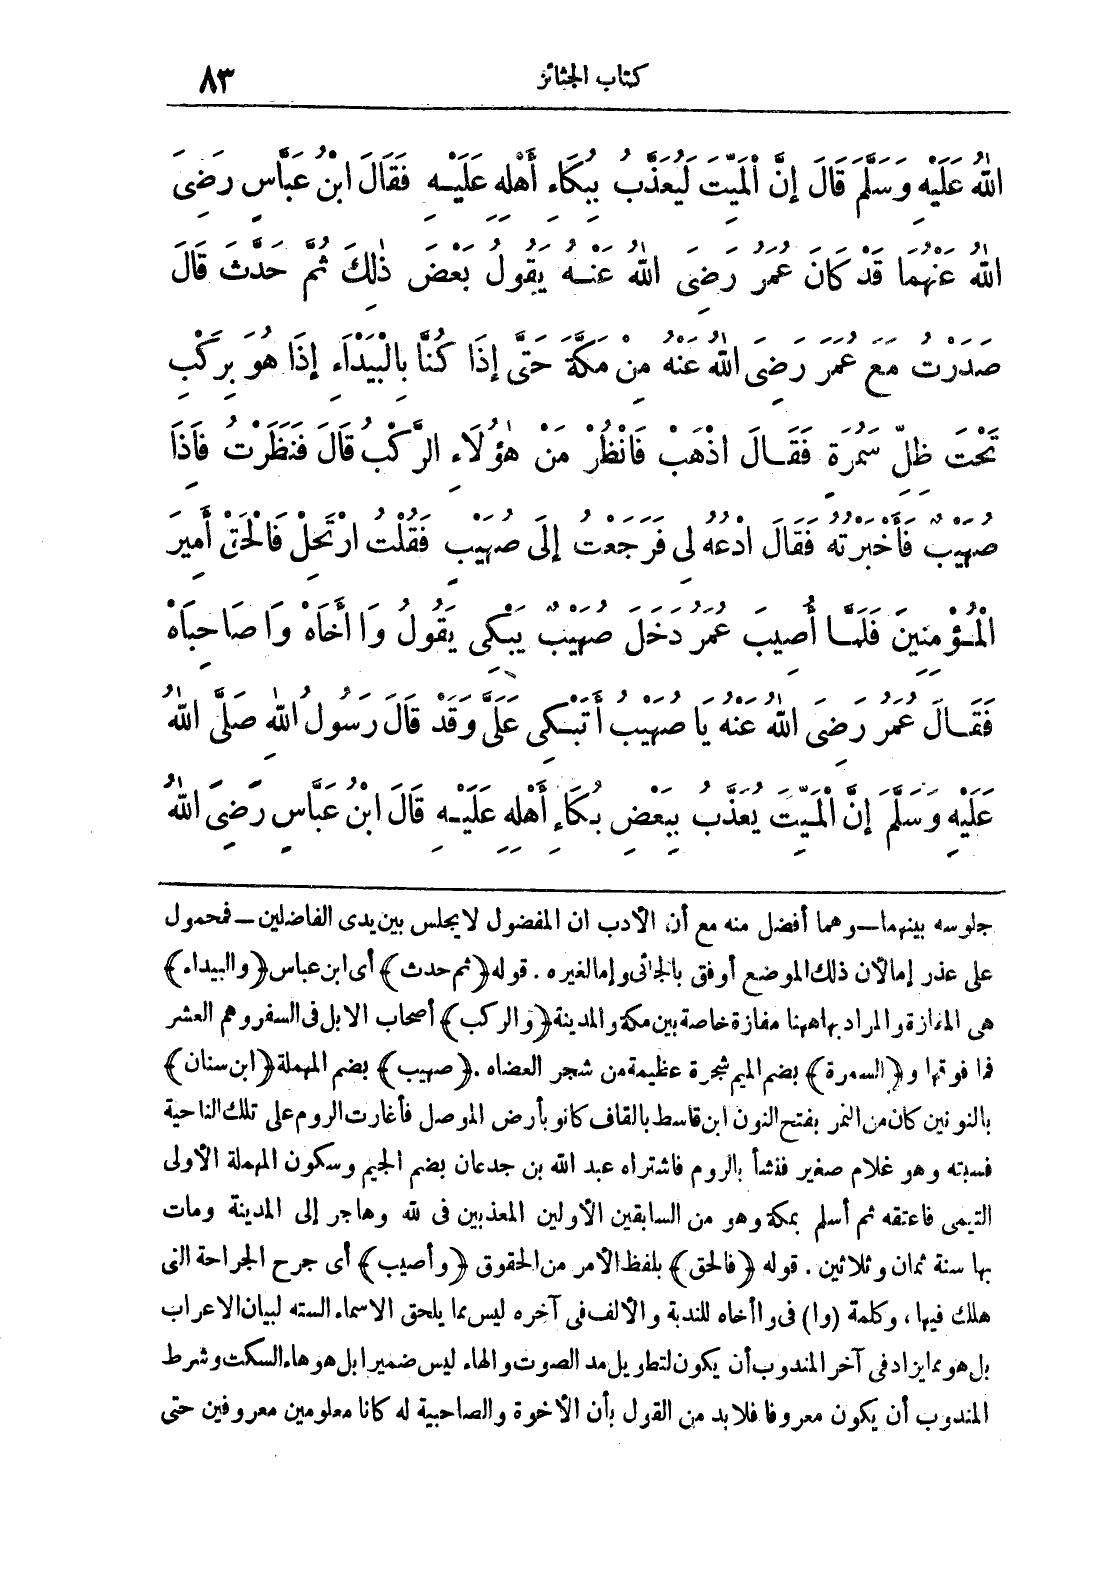 كتاب الجنائز ٨٣
اللهُ عَلَيْهِ وَسَلَّمَ قَالَ إِنَّ الْمَيِّتَ لَيُعَذَّبُ بِبُكَاءِ أَهْلِهِ عَلَيْهِ فَقَالَ ابْنُ عَبَّاسٍ رَضِيَ
اللهُ عَنْهُمَا قَدْ كَانَ عُمَرُ رَضِيَ اللهُ عَنْهُ يَقُولُ بَعْضَ ذٰلِكَ ثُمَّ حَدَّثَ قَالَ
صَدَرْتُ مَعَ عُمَرَ رَضِيَ اللهُ عَنْهُ مِنْ مَكَّةَ حَتَّى إِذَا كُنَّا بِالْبَيْدَاءِ إِذَا هُوَ بِرَكْبٍ
تَحْتَ ظِلِّ سَمُرَةٍ فَقَالَ اذْهَبْ فَانْظُرْ مَنْ هٰؤُلَاءِ الرَّكْبُ قَالَ فَنَظَرْتُ فَاِذَا
صُهَيْبٌ فَأَخْبَرْتُهُ فَقَالَ ادْعُهُ لِي فَرَجَعْتُ إِلَى صُهَيْبٍ فَقُلْتُ ارْتَحِلْ فَالْحَقْ أَمِيرَ
الْمُؤْمِنِينَ فَلَمَّا أُصِيبَ عُمَرُ دَخَلَ صُهَيْبٌ يَبْكِي يَقُولُ وَا أَخَاهْ وَا صَاحِبَاهْ
فَقَالَ عُمَرُ رَضِيَ اللهُ عَنْهُ يَا صُهَيْبُ أَتَبْكِي عَلَيَّ وَقَدْ قَالَ رَسُولُ اللهِ صَلَّى اللهُ
عَلَيْهِ وَسَلَّمَ إِنَّ الْمَيِّتَ يُعَذَّبُ بِبَعْضِ بُكَاءِ أَهْلِهِ عَلَيْهِ قَالَ ابْنُ عَبَّاسٍ رَضِيَ اللهُ
جلوسه بينهما—وهما أفضل منه مع أن الأدب ان المفضول لا يجلس بين يدى الفاضلين—فمحمول
على عذر إما لأن ذلك الموضع أوفق بالجائى وإما لغيره. قوله ﴿ثم حدث﴾ أى ابن عباس ﴿والبيداء﴾
هى المفازة والمراد بها ههنا مفازة خاصة بين مكة والمدينة ﴿والركب﴾ أصحاب الابل فى السفر وهم العشر
فما فوقها و﴿السمرة﴾ بضم الميم شجرة عظيمة من شجر العضاه. ﴿صهيب﴾ بضم المهملة ﴿ابن سنان﴾
بالنونين كان من النمر بفتح النون ابن قاسط بالقاف كانو بأرض الموصل فأغارت الروم على تلك الناحية
فسبته وهو غلام صغير فنشأ بالروم فاشتراه عبد الله بن جدعان بضم الجيم وسكون المهملة الأولى
التيمى فاعتقه ثم أسلم بمكة وهو من السابقين الأولين المعذبين فى لله وهاجر إلى المدينة ومات
بها سنة ثمان وثلاثين. قوله ﴿فالحق﴾ بلفظ الأمر من الحقوق ﴿وأصيب﴾ أى جرح الجراحة التى
هلك فيها، وكلمة (وا) فى وا أخاه للندبة والألف فى آخره ليس مما يلحق الاسماء الستة لبيان الاعراب
بل هو مما يزاد فى آخر المندوب أن يكون لتطويل مد الصوت والهاء ليس ضميرا بل هو هاء السكت وشرط
المندوب أن يكون معروفا فلا بد من القول بأن الأخوة والصاحبية له كانا معلومين معروفين حتى